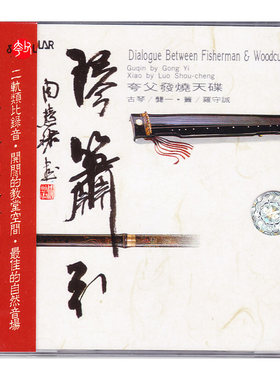 Dialogue Between Fisherman & Woodcu
Guqin by Gong Yi
Xiao by Luo Shou-cheng
夸父發燒天碟
古琴/龔一·簫/羅守誠
琴簫引
二軌類比錄音·開闊的教堂空間·最佳的自然音場